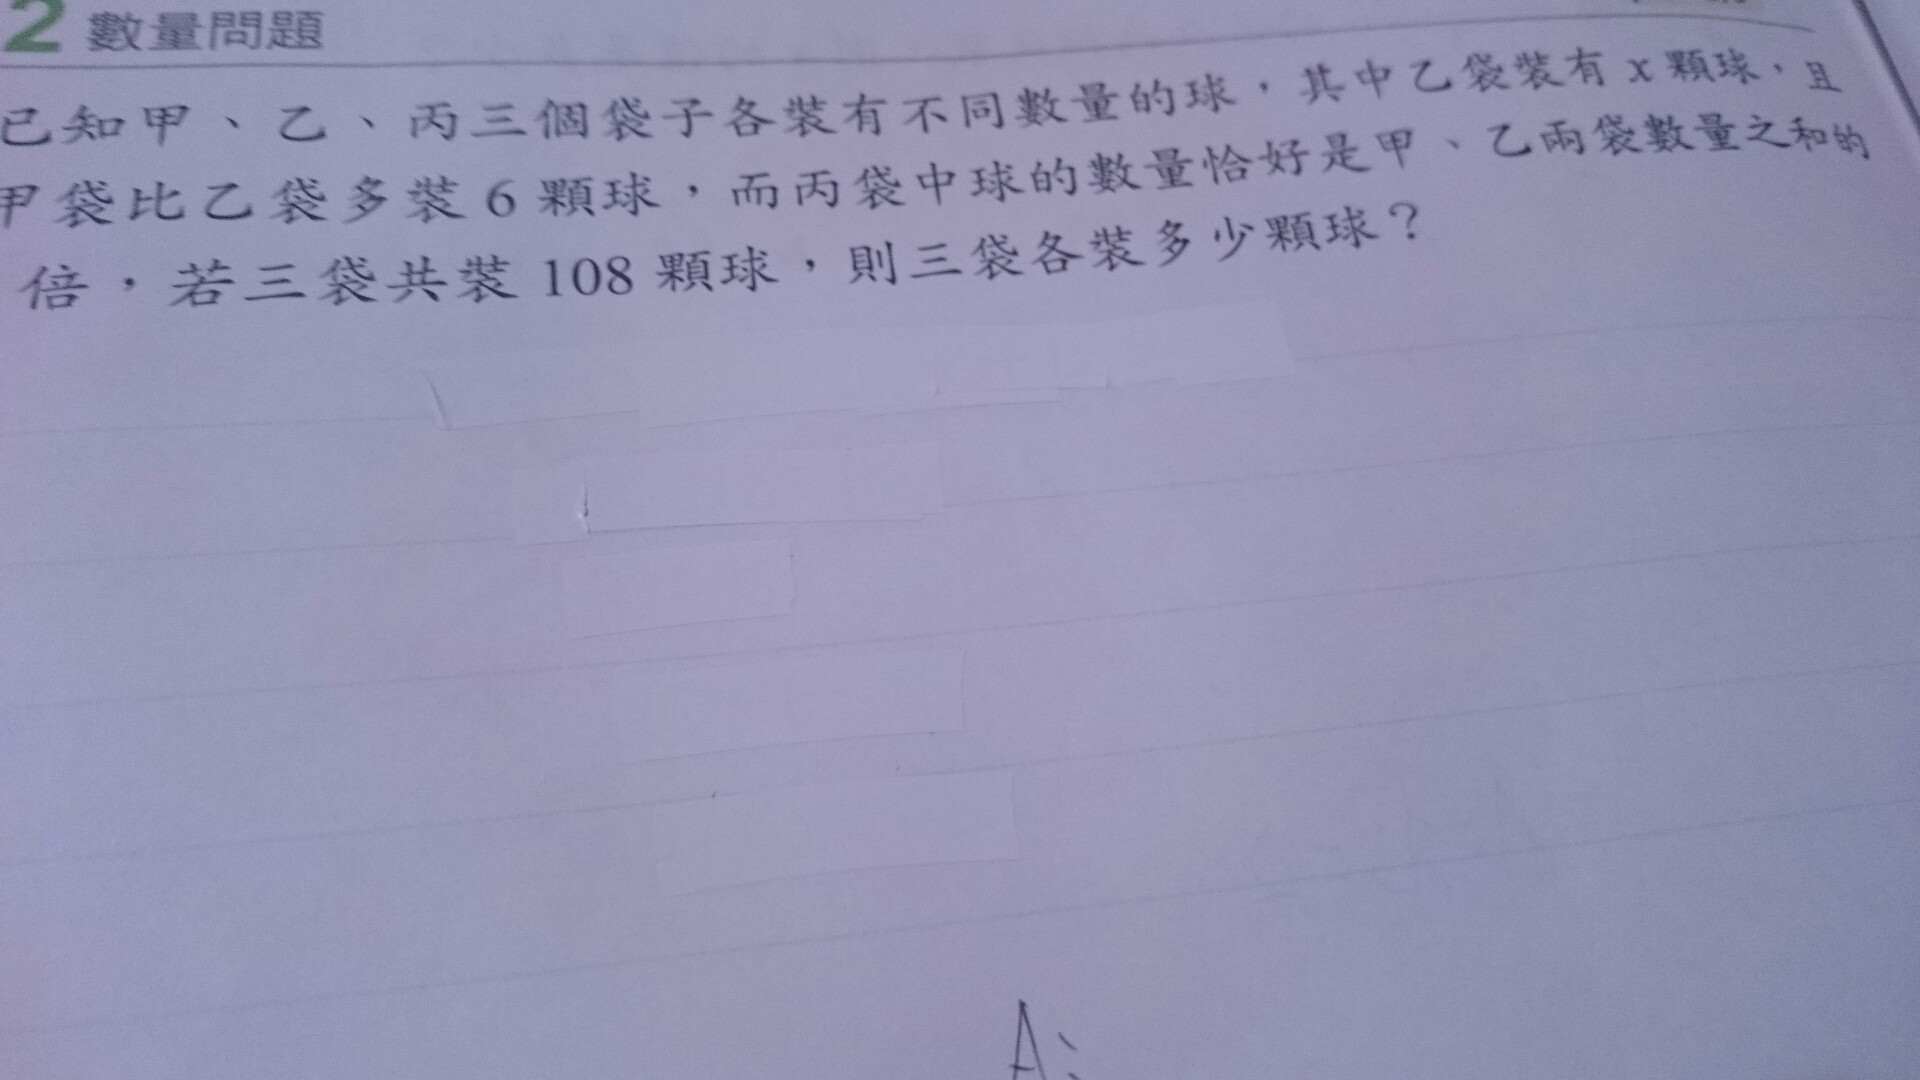 2 數量問題
已知甲、乙、丙三個袋子各裝有不同數量的球，其中乙袋裝有 x 顆球，且
甲袋比乙袋多裝 6 顆球，而丙袋中球的數量恰好是甲、乙兩袋數量之和的
倍，若三袋共裝 108 顆球，則三袋各裝多少顆球？
A: